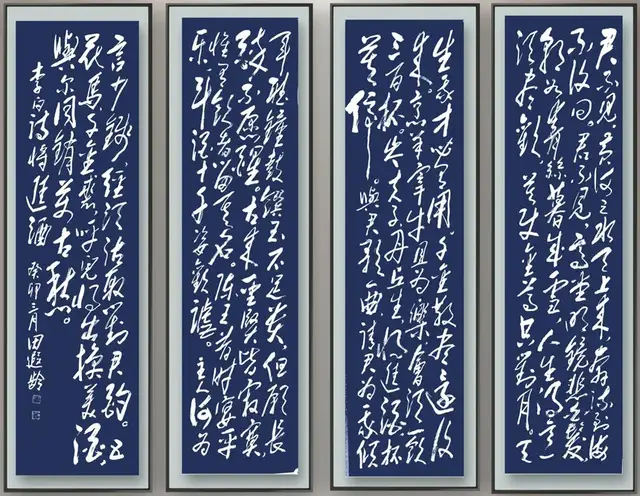 君不见黄河之水天上来奔流到海
不復回君不见高堂明镜悲白髮
朝如青絲暮成雪人生得意
须尽歡莫使金尊空對月。天
生我才必有用千金散盡還復
来烹羊宰牛且为樂會须一飲
三百杯岑夫子丹丘生将進酒杯
莫停。與君歌一曲請君为我倾
耳聽鐘鼓饌玉不足贵但願長
醉不愿醒古来圣賢皆寂寞
惟有飲者留其名陈王昔时宴平
乐斗酒十千恣歡謔。主人何为
言少錢径须沽取對君酌。五
花馬千金裘呼兒将出换美酒
與尔同銷萬古愁。
李白詩将進酒 癸卯三月田遐齡